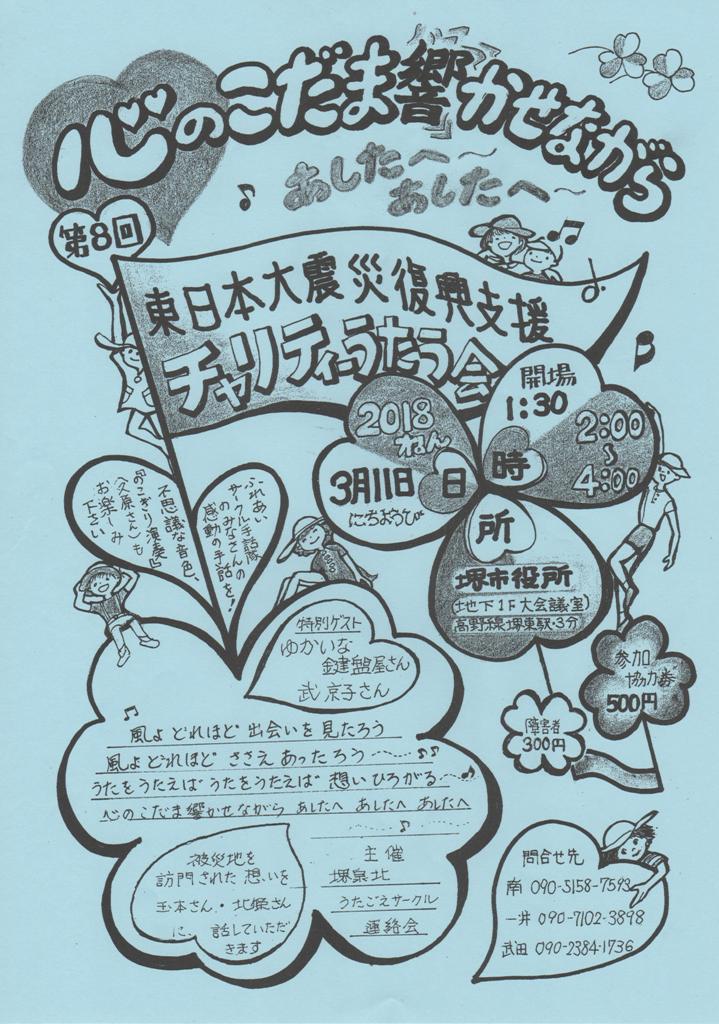 心のこだま響かせながら
あしたへ〜
あしたへ〜
第8回
東日本大震災復興支援
チャリティーうたう会
2018
ねん
3月11日
にちようび
日
時
開場
1:30
2:00
〜
4:00
所
堺市役所
(地下1F大会議室)
高野線堺東駅・3分
ふれあい
サークル手話隊
のみなさんの
感動の手話を!
不思議な音色、
『のこぎり演奏』
(久原さん)も
お楽しみ
下さい
特別ゲスト
ゆかいな
鍵盤屋さん
武 京子さん
参加
協力券
500円
障害者
300円
風よ どれほど 出会いを見たろう
風よ どれほど ささえ あったろう……
うたをうたえば うたをうたえば 想い ひろがる……
心のこだま響かせながら あしたへ あしたへ あしたへ
被災地を
訪問された 想いを
玉本さん・北堀さん
に、話していただ
きます
主催
堺泉北
うたごえサークル
連絡会
問合せ先
南 090-5158-7593
一井 090-7102-3898
武田 090-2384-1736